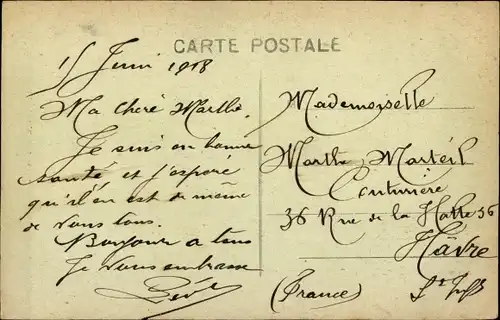 CARTE POSTALE
15 Juin 1918
Ma chère Marthe.
Je suis en bonne
santé et j'espère
qu'il en est de même
de vous tous.
Bonjour a tous
Je vous embrasse
Mademoiselle
Marthe Marteil
Couturière
36 Rue de la Halle 36
Hâvre
(France)